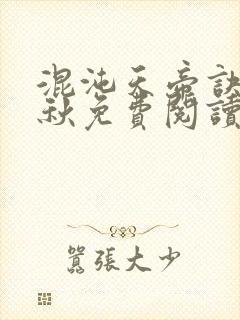 混沌天帝訣
秋免費閱讀
囂張大少